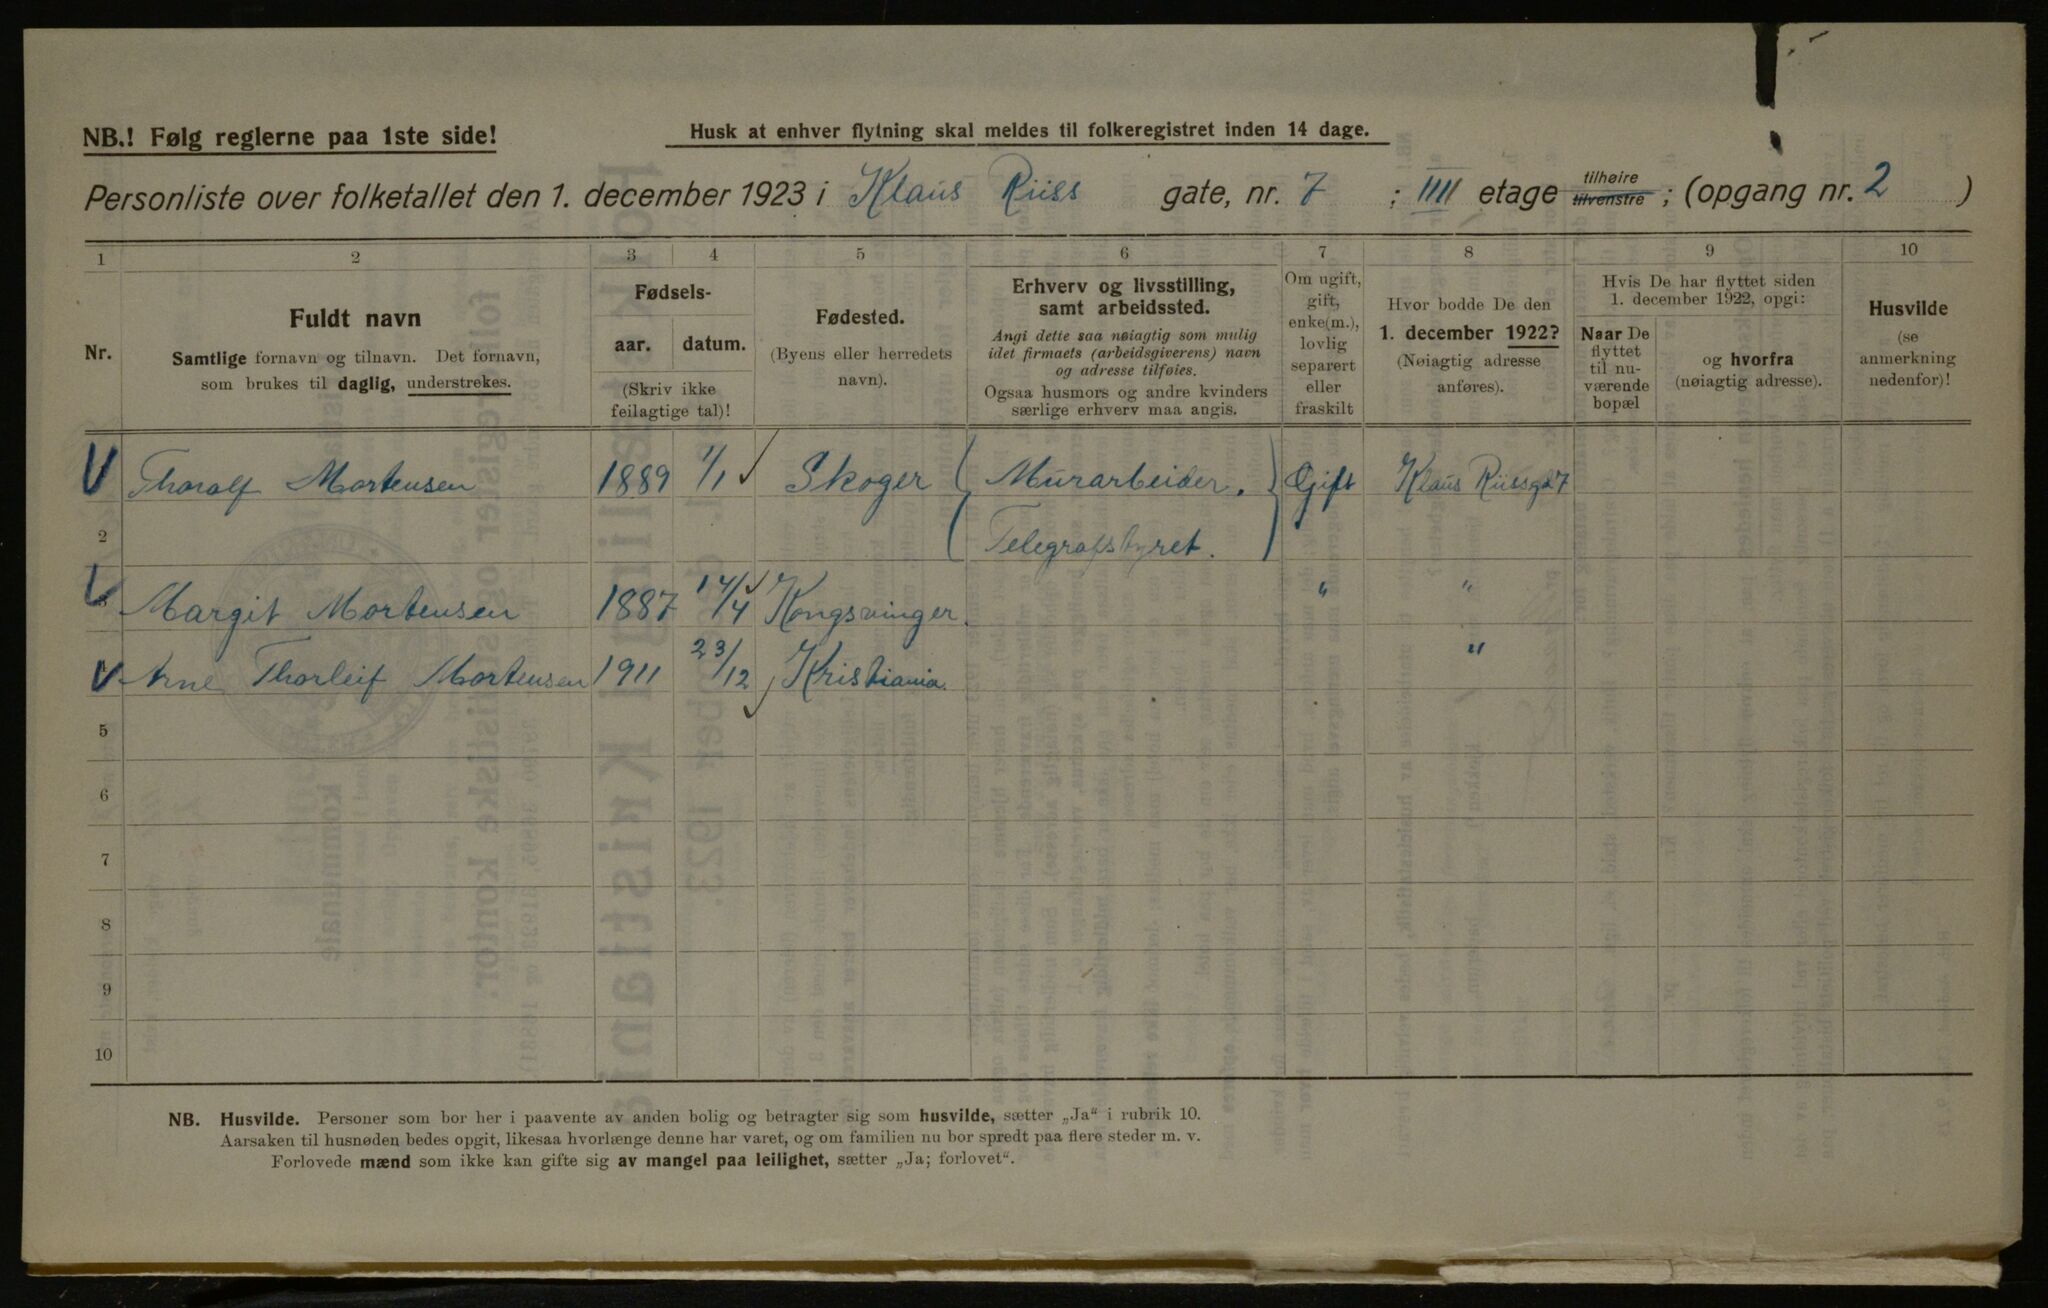 NB.! Følg reglerne paa 1ste side!
Husk at enhver flytning skal meldes til folkeregistret inden 14 dage.
Personliste over folketallet den 1. december 1923 i Klaus Riiss gate, nr. 7 ; IIII etage tilhøire tilvenstre ; (opgang nr. 2 )
1 2 3 4 5 6 7 8 9 10
Nr.
Fuldt navn
Samtlige fornavn og tilnavn. Det fornavn,
som brukes til daglig, understrekes.
Fødsels-
aar. datum.
(Skriv ikke
feilagtige tal)!
Fødested.
(Byens eller herredets
navn).
Erhverv og livsstilling,
samt arbeidssted.
Angi dette saa nøiagtig som mulig
idet firmaets (arbeidsgiverens) navn
og adresse tilføies.
Ogsaa husmors og andre kvinders
særlige erhverv maa angis.
Om ugift,
gift,
enke(m.),
lovlig
separert
eller
fraskilt
Hvor bodde De den
1. december 1922?
(Nøiagtig adresse
anføres).
Hvis De har flyttet siden
1. december 1922, opgi:
Naar De
flyttet
til nu-
værende
bopæl
og hvorfra
(nøiagtig adresse).
Husvilde
(se
anmerkning
nedenfor)!
Thoralf Mortensen 1889 1/1 Skoger ( Murarbeider. ) Gift Klaus Riissgd 7
2 ( Telegrafstyret. )
3 Margit Mortensen 1887 14/4 Kongsvinger. " "
Arne Thorleif Mortensen 1911 23/12 Kristiania. "
5
6
7
8
9
10
NB. Husvilde. Personer som bor her i paavente av anden bolig og betragter sig som husvilde, sætter „Ja“ i rubrik 10.
Aarsaken til husnøden bedes opgit, likesaa hvorlænge denne har varet, og om familien nu bor spredt paa flere steder m. v.
Forlovede mænd som ikke kan gifte sig av mangel paa leilighet, sætter „Ja; forlovet“.